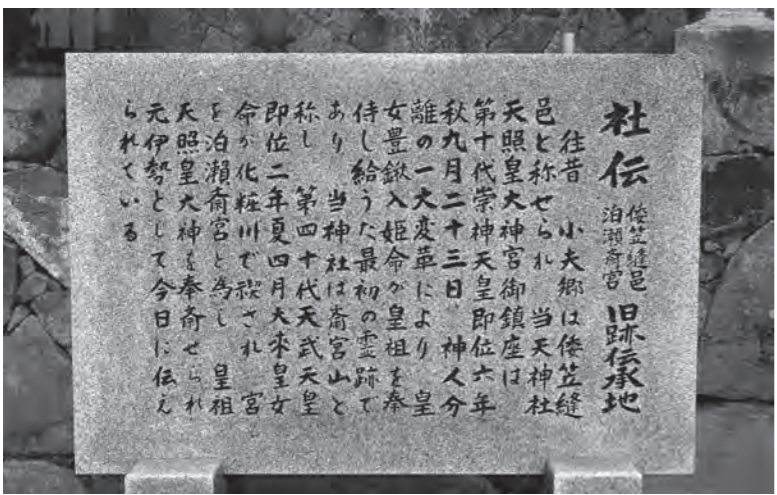 社伝
倭笠縫邑
泊瀬斎宮
旧跡伝承地
往昔　小夫郷は倭笠縫
邑と称せられ　当天神社
天照皇大神宮御鎮座は
第十代崇神天皇即位六年
秋九月二十三日　神人分
離の一大変革により　皇
女豊鍬入姫命が皇祖を奉
侍し給うた最初の霊跡で
あり　当神社は斎宮山と
称し　第四十代天武天皇
即位二年夏四月大来皇女
命が化粧川で禊され　宮
を泊瀬斎宮と為し　皇祖
天照皇大神を奉斎せられ
元伊勢として今日に伝え
られている